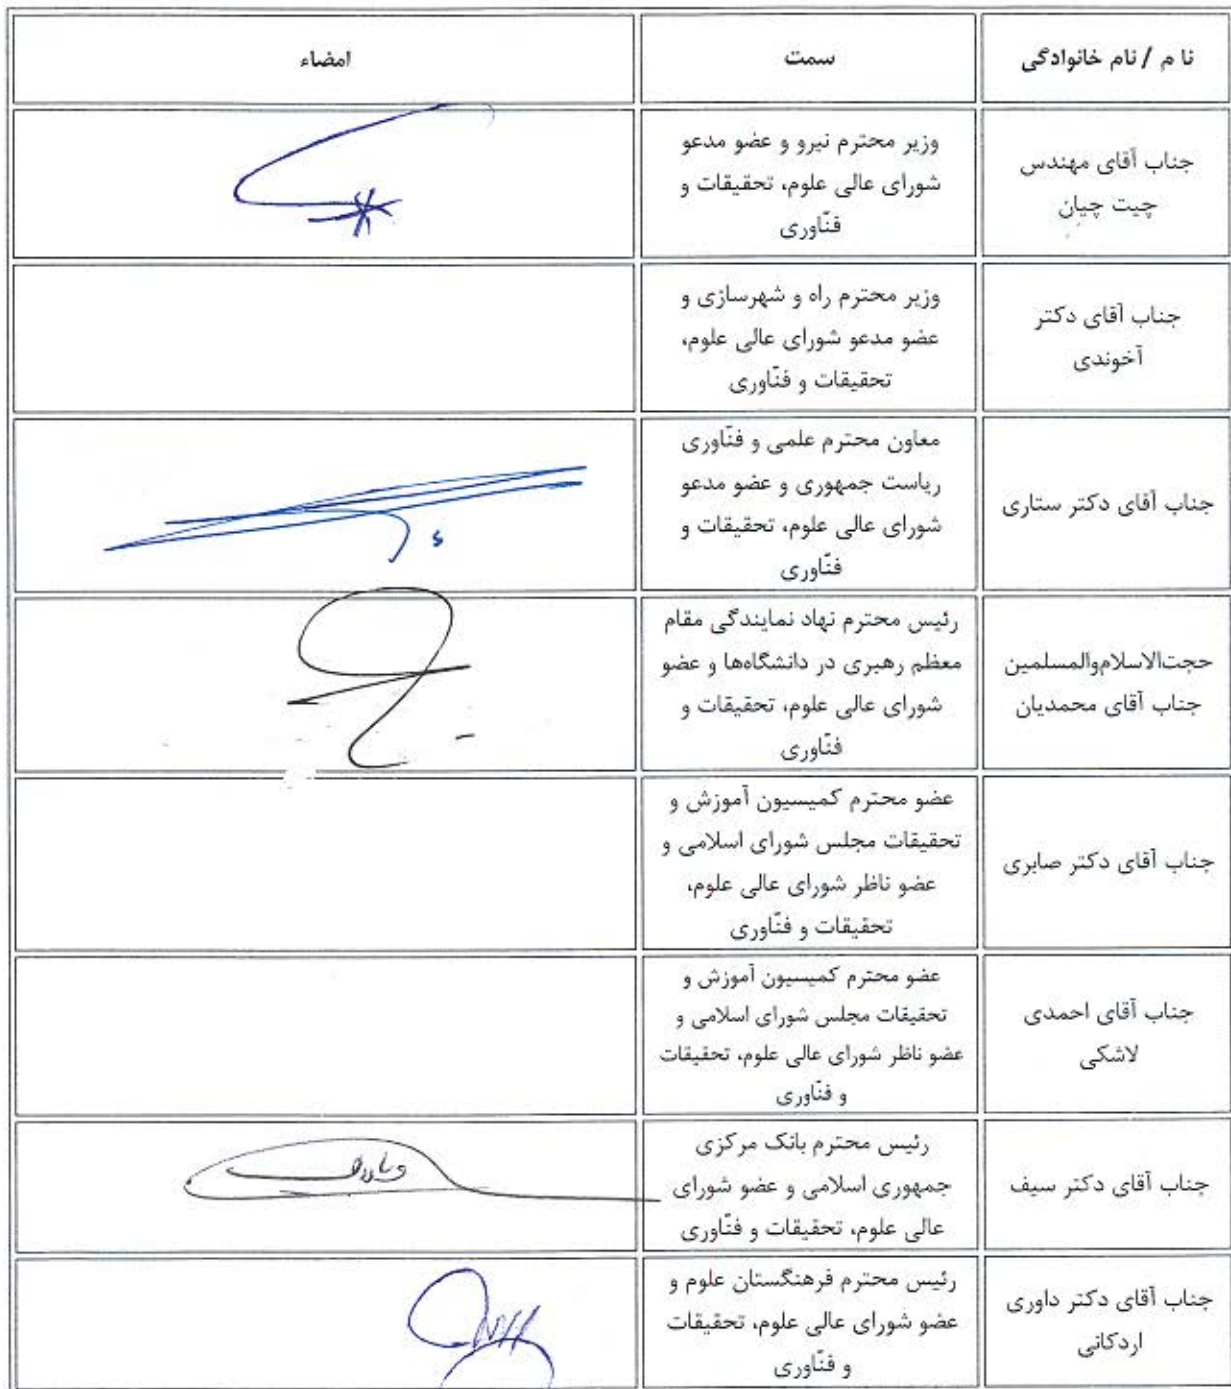 نا م / نام خانوادگی
سمت
امضاء
جناب آقای مهندس
چیت چیان
وزیر محترم نیرو و عضو مدعو
شورای عالی علوم، تحقیقات و
فنّاوری
جناب آقای دکتر
آخوندی
وزیر محترم راه و شهرسازی و
عضو مدعو شورای عالی علوم،
تحقیقات و فنّاوری
جناب آقای دکتر ستاری
معاون محترم علمی و فنّاوری
ریاست جمهوری و عضو مدعو
شورای عالی علوم، تحقیقات و
فنّاوری
حجت‌الاسلام‌والمسلمین
جناب آقای محمدیان
رئیس محترم نهاد نمایندگی مقام
معظم رهبری در دانشگاه‌ها و عضو
شورای عالی علوم، تحقیقات و
فنّاوری
جناب آقای دکتر صابری
عضو محترم کمیسیون آموزش و
تحقیقات مجلس شورای اسلامی و
عضو ناظر شورای عالی علوم،
تحقیقات و فنّاوری
جناب آقای احمدی
لاشکی
عضو محترم کمیسیون آموزش و
تحقیقات مجلس شورای اسلامی و
عضو ناظر شورای عالی علوم، تحقیقات
و فنّاوری
جناب آقای دکتر سیف
رئیس محترم بانک مرکزی
جمهوری اسلامی و عضو شورای
عالی علوم، تحقیقات و فنّاوری
جناب آقای دکتر داوری
اردکانی
رئیس محترم فرهنگستان علوم و
عضو شورای عالی علوم، تحقیقات
و فنّاوری